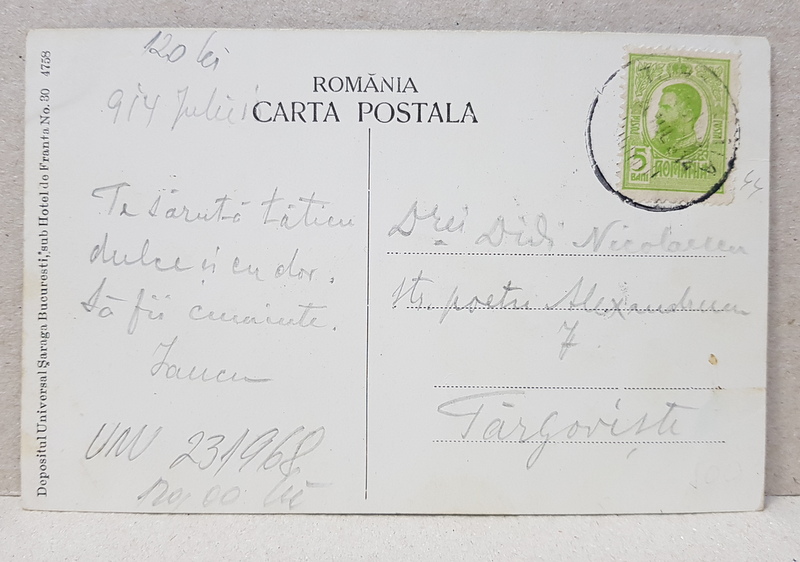 120 lei
914 Julie
ROMÂNIA
CARTA POSTALA
Te sărută tăticu
dulce și cu dor.
Să fii cuminte.
Iancu
23/968
120,00 lei
5
BANI
ROMANIA
Drei Didi Nicolaescu
str. poetu Alexandrescu
7
Târgoviște
Depositul Universal Șaraga Bucuresti, sub Hotel de Franta No. 30 4758